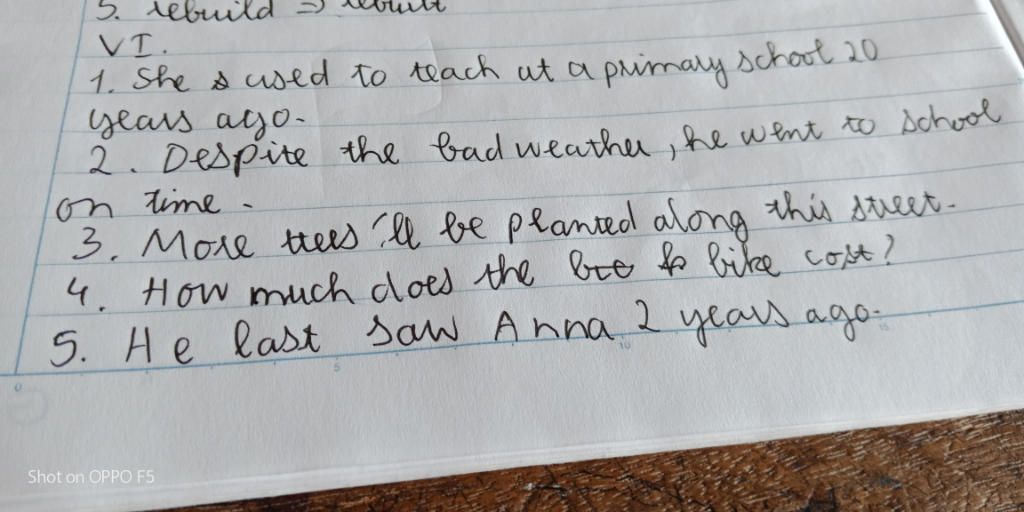 5. rebuild => rebuilt
VI.
1. She used to teach at a primary school 20
years ago.
2. Despite the bad weather, he went to school
on time.
3. More trees 'll be planted along this street.
4. How much does the bike cost?
5. He last saw Anna 2 years ago.
0 5 10 15
Shot on OPPO F5